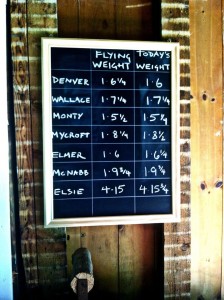 FLYING WEIGHT TODAY'S WEIGHT
DENVER 1·6¼ 1·6
WALLACE 1·7¼ 1·7¼
MONTY 1·5½ 1·5¼
MYCROFT 1·8¼ 1·8½
ELMER 1·6 1·6¼
MCNABB 1·9¾ 1·9¼
ELSIE 4·15 4·15¾